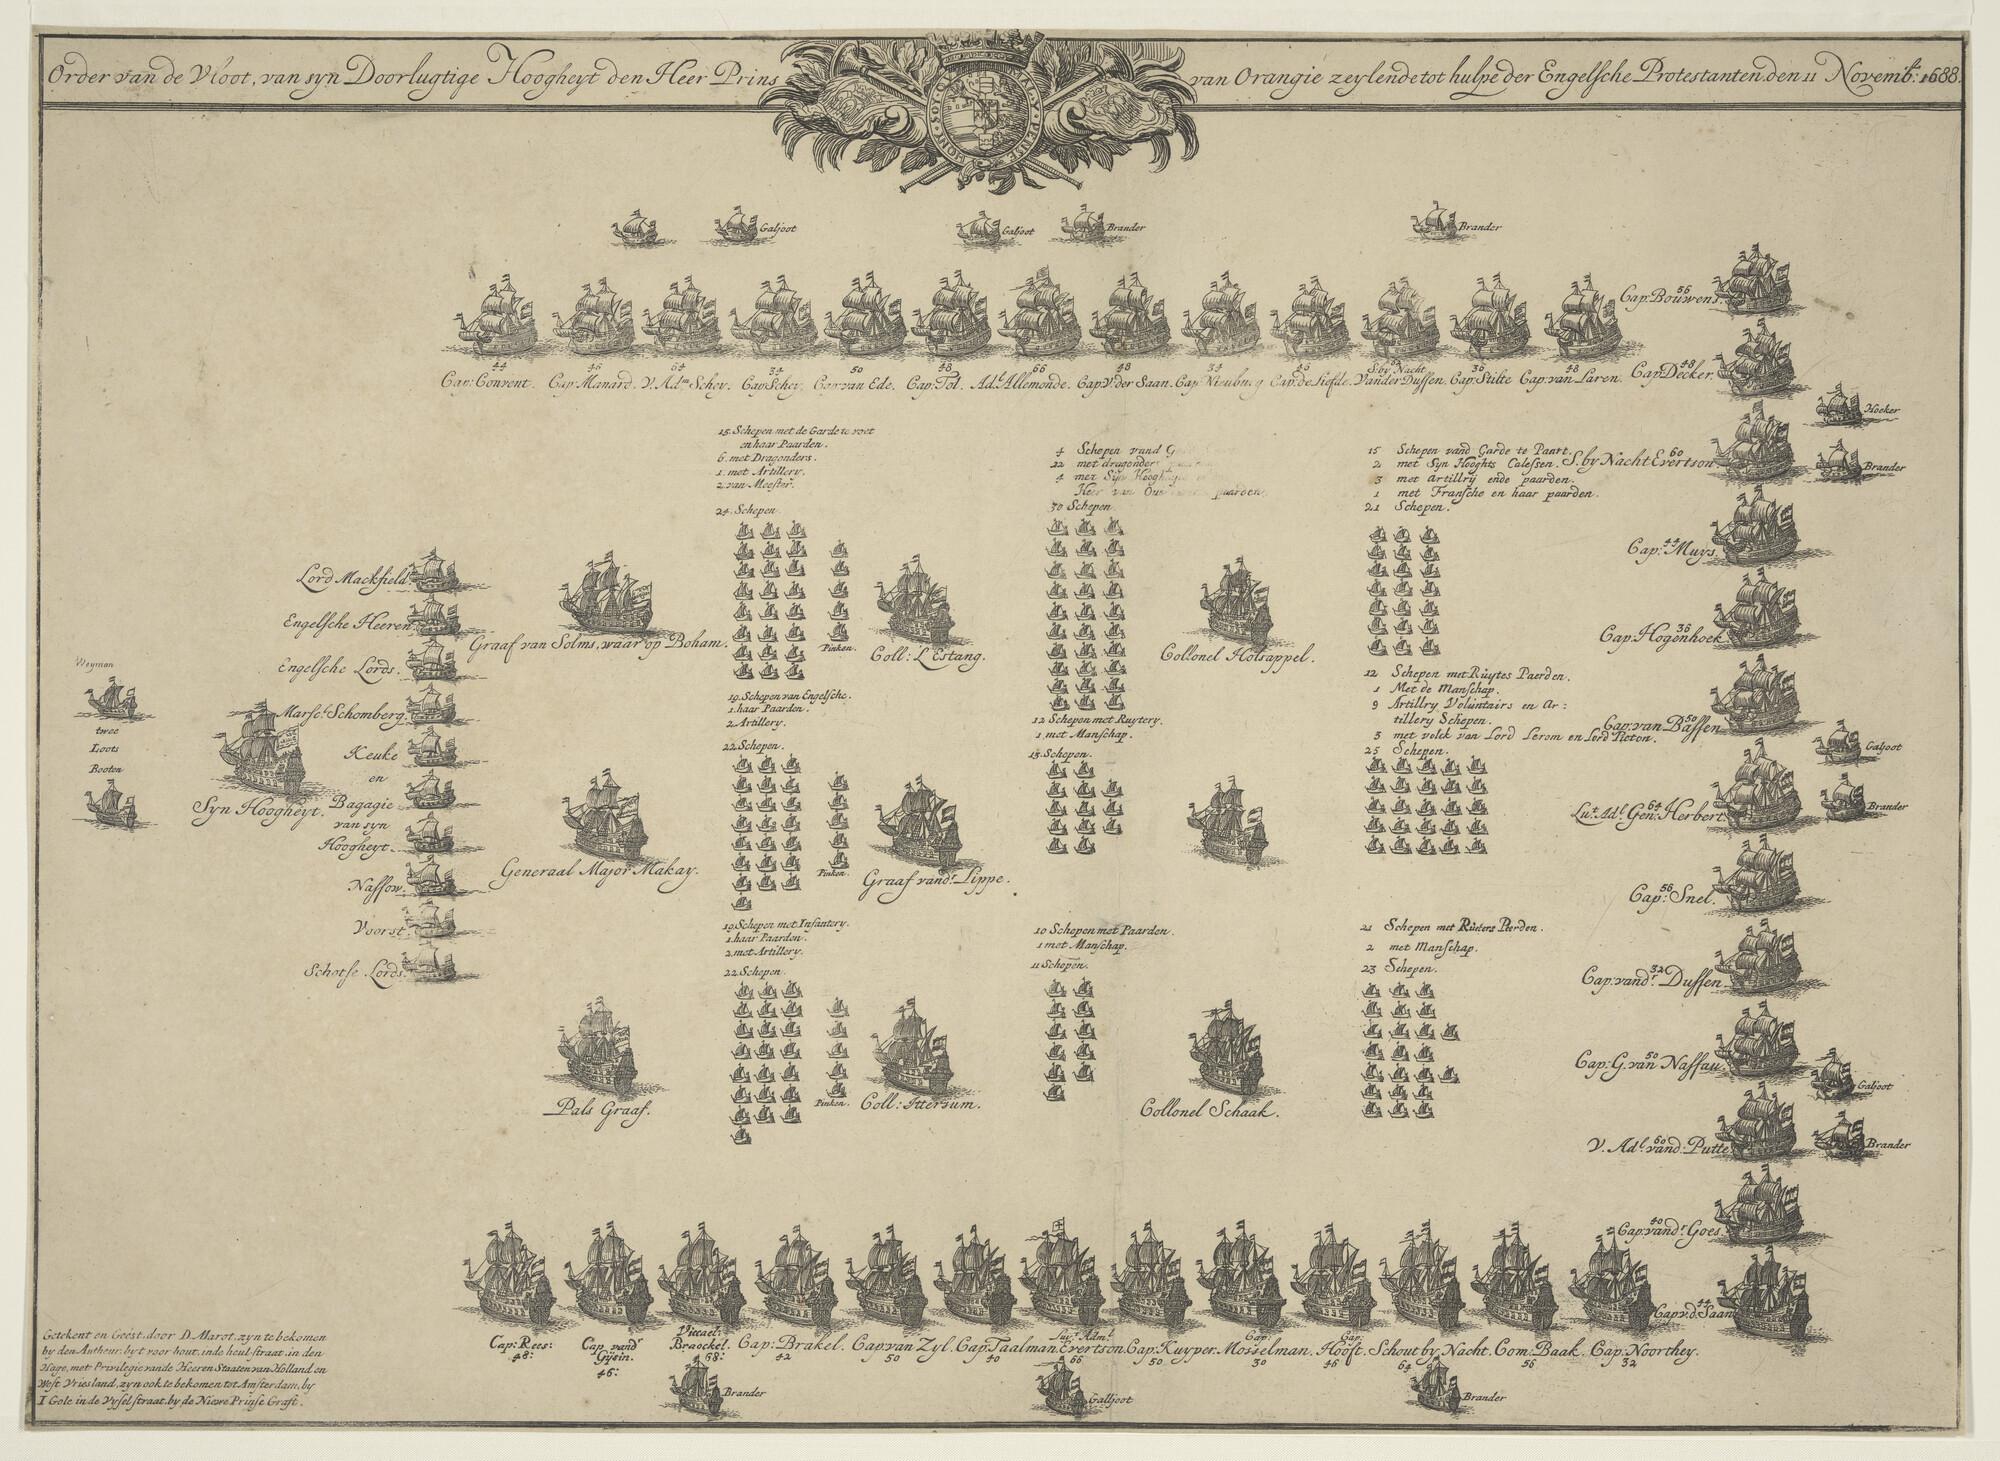 Order van de Vloot, van syn Doorlugtige Hoogheyt den Heer Prins van Orangie zeylende tot hulpe der Engelsche Protestanten den 11 Novemb: 1688.
HONY SOIT QUI MAL Y PENSE
Galjoot
Galjoot
Brander
Brander
44
46
64
34
50
48
66
48
34
46
S. by Nacht
36
48
Cap: Convent. Cap: Manard. V. Adm Schey. Cap Schey. Cap van Ede. Cap: Tol. Ad. Allemonde. Cap V. der Saan. Cap Nieuburg Cap. de Liefde. Vander Dussen. Cap: Stilte Cap: van Laren.
56
Cap: Bouwens.
48
Cap Decker.
Hoeker
60
S. by Nacht Evertson
Brander
44
Cap: Muys.
36
Cap. Hogenhoek
50
Cap: van Bassen
Galjoot
64
Lut. Adl. Gen: Herbert
Brander
56
Cap: Snel.
32
Cap. vandr Dussen
50
Cap: G. van Nassau
Galjoot
60
V. Adl. vand: Putte
Brander
40
Cap: vandr Goes
44
Cap: v. d. Saan
15. Schepen met de Garde te voet
en haar Paarden.
6. met Dragonders.
1. met Artillery.
2. van Meester.
24. Schepen.
4 Schepen vand
22 met dragonder
4 met Syn Hoogh
Heer van Ou paarden.
30 Schepen.
15 Schepen vand Garde te Paart.
2 met Syn Hooghts Calessen.
3 met Artillry ende paarden.
1 met Fransche en haar paarden.
21 Schepen.
Lord Mackfield
Engelsche Heeren
Engelsche Lords.
Marscl. Schomberg.
Keuke
en
Bagagie
van syn
Hoogheyt.
Nassow.
Voorst.
Schotse Lords.
Weyman
twee
Loots
Booten
Syn Hoogheyt.
Graaf van Solms, waar op Boham.
Pinken.
Coll: L'Estang.
Collonel Holsappel.
19. Schepen van Engelsche.
1. haar Paarden.
2. Artillery.
22. Schepen.
12 Schepen met Ruytery.
1. met Manschap.
13. Schepen.
12 Schepen met Ruytes Paerden.
1 Met de Manschap.
9 Artillry Voluntairs en Ar:
tillery Schepen.
3 met volck van Lord Lerom en Lord Pieton.
25 Schepen.
Generaal Major Makay.
Pinken.
Graaf vandr Lippe.
19. Schepen met Infantery.
1. haar Paarden.
2. met Artillery.
22. Schepen.
10 Schepen met Paarden.
1 met Manschap.
11 Schepen.
21 Schepen met Ruiters Peerden.
2 met Manschap.
23 Schepen.
Pals Graaf.
Pinken.
Coll: Ittersum.
Collonel Schaak.
Cap: Rees:
48:
Cap vandr
Gysin.
46:
Viceael:
Braeckel.
68:
Cap: Brakel.
42
Cap: van Zyl.
50
Cap. Taalman.
40
Luyt Adml
Evertson
66
Cap: Kuyper.
50
Cap:
Mosselman.
30
Cap:
Hooft.
46
Schout by Nacht.
64
Com: Baak.
56
Cap: Noorthey.
32
Brander
Galljoot
Brander
Getekent en Geëst. door D. Marot. zyn te bekomen
by den Autheur. by t voor hout. inde heul straat. in den
Hage, met Privilegie vande Heeren Staaten van Holland en
West Vriesland, zyn ook te bekomen tot Amsterdam, by
I Gole in de Vysel straat. by de Niewe Prinse Graft.